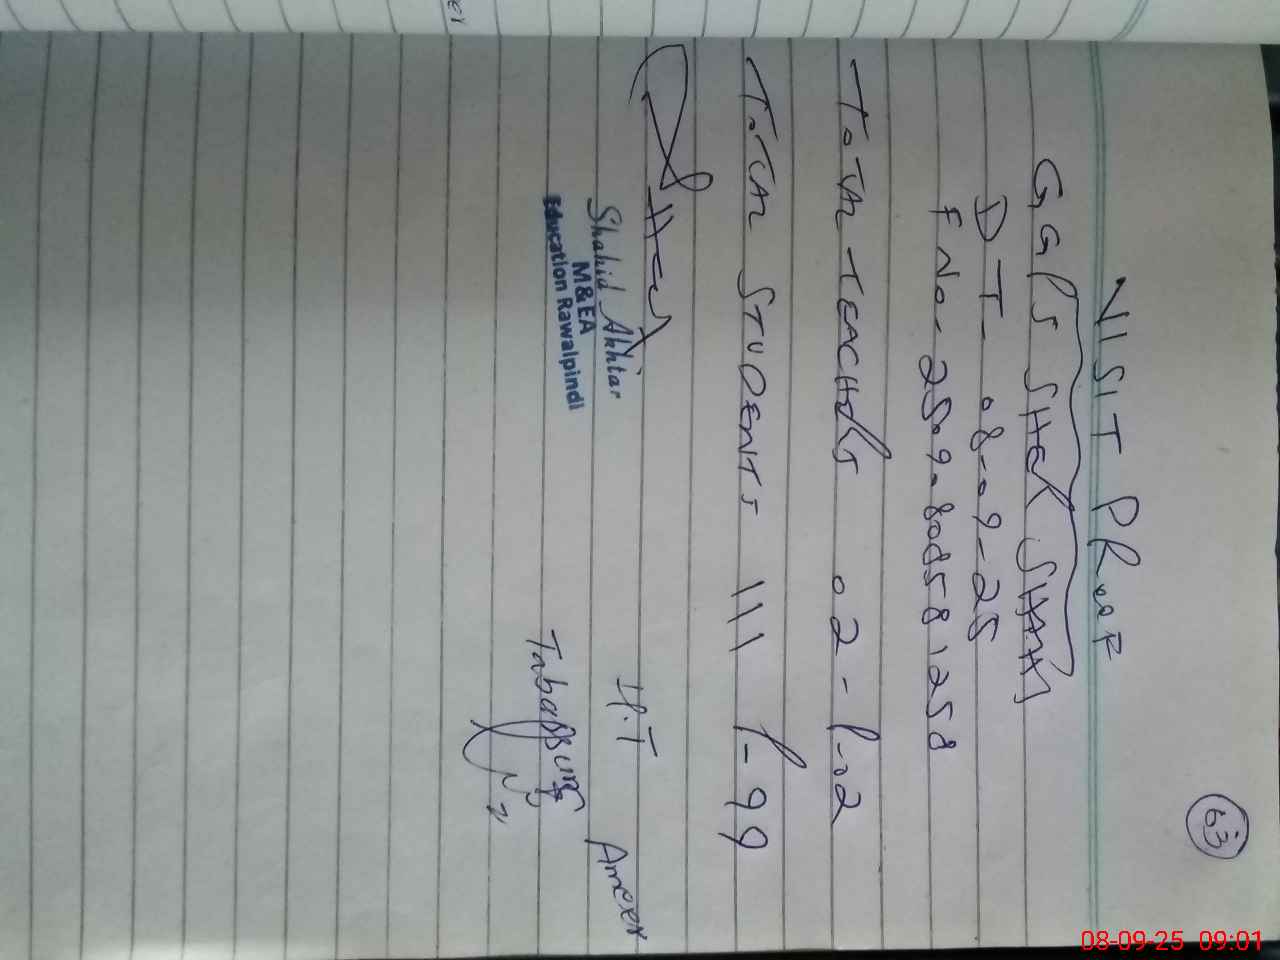 63
VISIT PROOF
GGPS SHER SHAH
DT- 08-09-25
F No- 250908058 1258
TOTAL TEACHERS 02 - P-02
TOTAL STUDENTS 111 P-99
Shahid Akhtar
M&EA
Education Rawalpindi
H.T Ameer
Tabassum
08-09-25 09:01